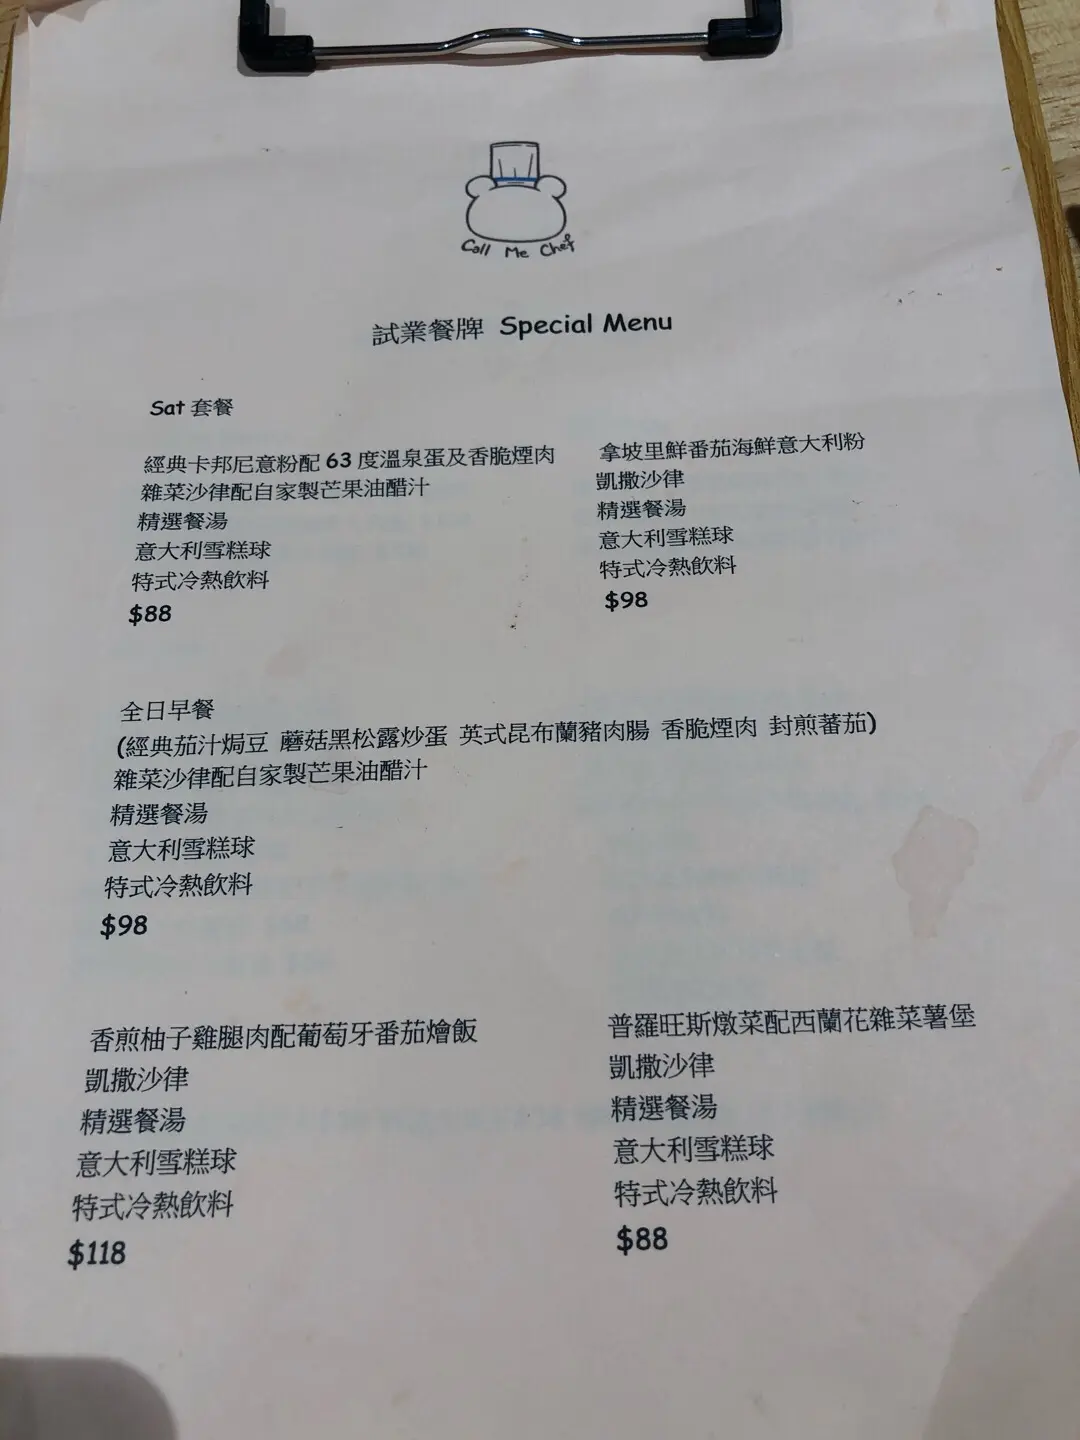 Call Me Chef
試業餐牌 Special Menu
Sat 套餐
經典卡邦尼意粉配 63 度溫泉蛋及香脆煙肉
雜菜沙律配自家製芒果油醋汁
精選餐湯
意大利雪糕球
特式冷熱飲料
$88
拿坡里鮮番茄海鮮意大利粉
凱撒沙律
精選餐湯
意大利雪糕球
特式冷熱飲料
$98
全日早餐
(經典茄汁焗豆 蘑菇黑松露炒蛋 英式昆布蘭豬肉腸 香脆煙肉 封煎蕃茄)
雜菜沙律配自家製芒果油醋汁
精選餐湯
意大利雪糕球
特式冷熱飲料
$98
香煎柚子雞腿肉配葡萄牙番茄燴飯
凱撒沙律
精選餐湯
意大利雪糕球
特式冷熱飲料
$118
普羅旺斯燉菜配西蘭花雜菜薯堡
凱撒沙律
精選餐湯
意大利雪糕球
特式冷熱飲料
$88